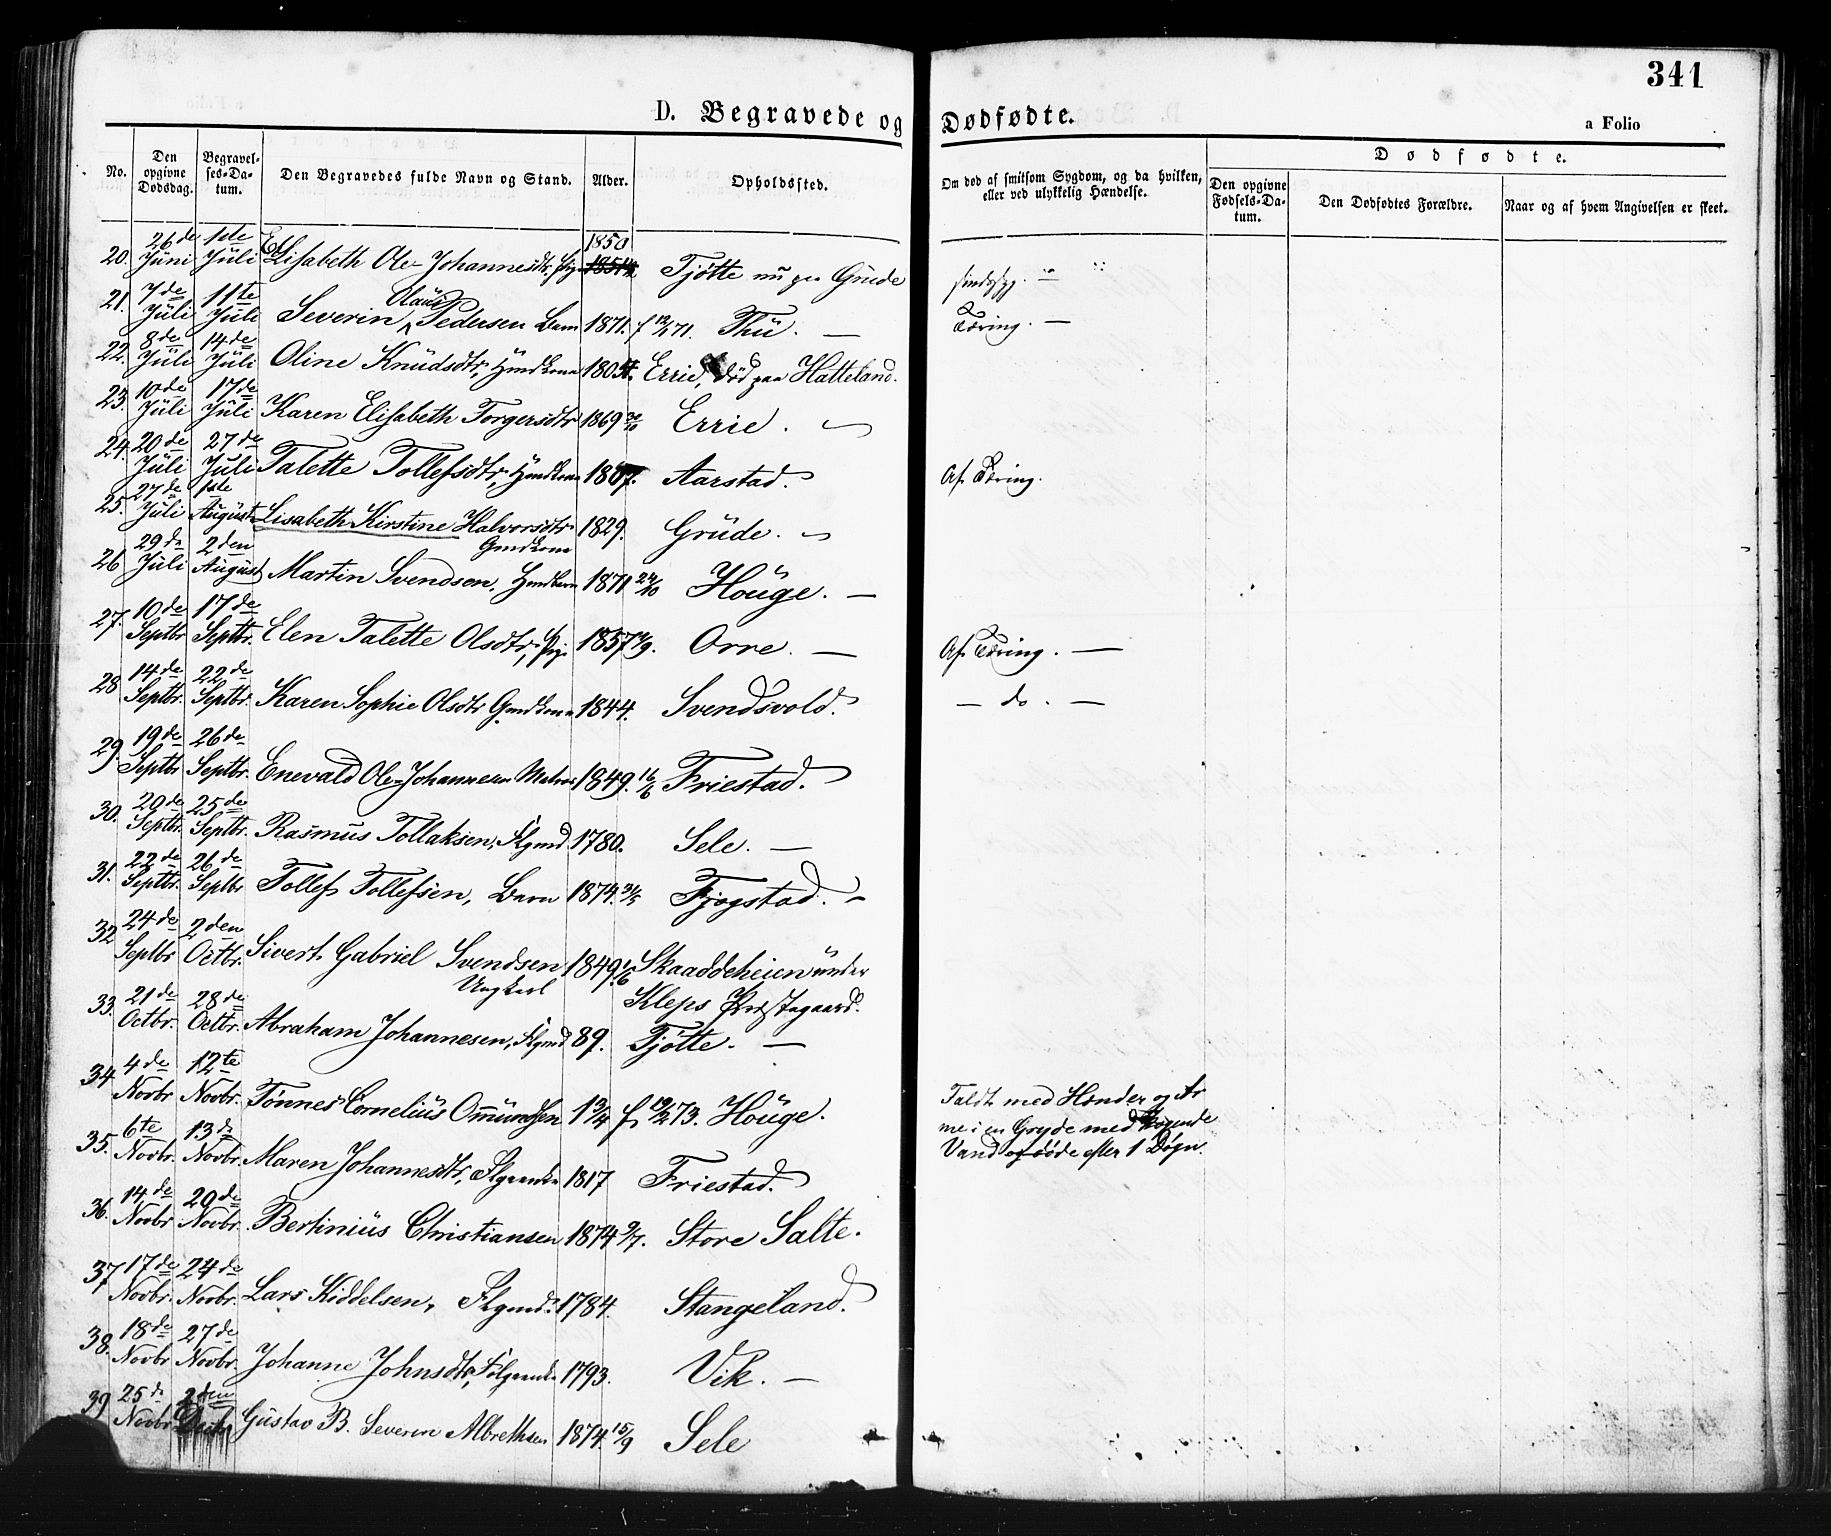 341
D. Begravede og Dødfødte.
a Folio
No.
Den opgivne Dødsdag.
Begravelses-Datum.
Den Begravedes fulde Navn og Stand.
Alder.
Opholdssted.
Om død af smitsom Sygdom, og da hvilken, eller ved ulykkelig Hændelse.
Dødfødte.
Den opgivne Fødsels-Datum.
Den Dødfødtes Forældre.
Naar og af hvem Angivelsen er skeet.
20. 26de Juni 1ste Juli Elisabeth Ole-Johannesdtr, Pige 1850 Tjøtte nu paa Grude sindssyg. —
21. 7de Juli 11te Juli Severin Olaus Pedersen Barn 1871. f 12/1 71. Thu. — Tæring. —
22. 8de Juli 14de Juli Oline Knudsdtr, Hmdkona Errie, død paa Hatteland.
23. 10de Juli 17de Juli Karen Elisabeth Torgersdtr 1869 30/10 Errie. —
24. 20de Juli 27de Juli Talette Tollefsdtr, Hmdkona Aarstad. Af Tæring.
25. 27de Juli 1ste August Lisabeth Kirstine Halvorsdtr Gmdkona 1829. Grude. —
26 29de Juli 2den August Martin Svendsen, Hmdbarn 1871 24/10 Houge. —
27. 10de Septbr 17de Septbr. Elen Talette Olsdtr, Pige 1857 Orre. — Af Tæring. —
28 14de Septbr. 22de Septbr. Karen Sophie Olsdtr Gmdkona 1844. Svendsvold. — do. —
29. 19de Septbr 26de Septbr. Enevald Ole-Johannesen Matros 1849. 16/6 Friestad.
30. 20de Septbr. 25de Septbr. Rasmus Tollaksen, Flgmd 1780. Sele. —
31. 22de Septbr. 26de Septbr Tollef Tollefsen, Barn 1874. 31/5 Fjogstad. —
32 24de Septbr 2den Octbr. Sivert Gabriel Svendsen Ungkarl 1849. 1/6 Skaaddeheien under Kleps Præstegaard.
33. 21de Octbr. 28de Octbr. Abraham Johannesen, Flgmd 89. Tjøtte. —
34 4de Novbr 12te Novbr. Tønnes Cornelius Omundsen 1 3/4 f 12/2 73. Houge. Faldt med Hænder og Ar
me i en Gryde med kogende
Vand og døde efter 1 Døgn.
35. 6te Novbr. 13de Novbr. Maren Johannesdtr, Flgenke 1817 Friestad.
36. 14de Novbr 20de Novbr. Bertinius Christiansen 1874 9/7. Store Salte.
37 17de Novbr. 24de Novbr. Lars Kiddelsen, Flgmd. 1784. Stangeland.
38. 18de Novbr 27de Novbr. Johanne Johnsdtr, Følgeenke 1793. Vik. —
39 25de Novbr 2den Decbr Gustav B. Severin Albrethsen 1874. 15/9 Sele